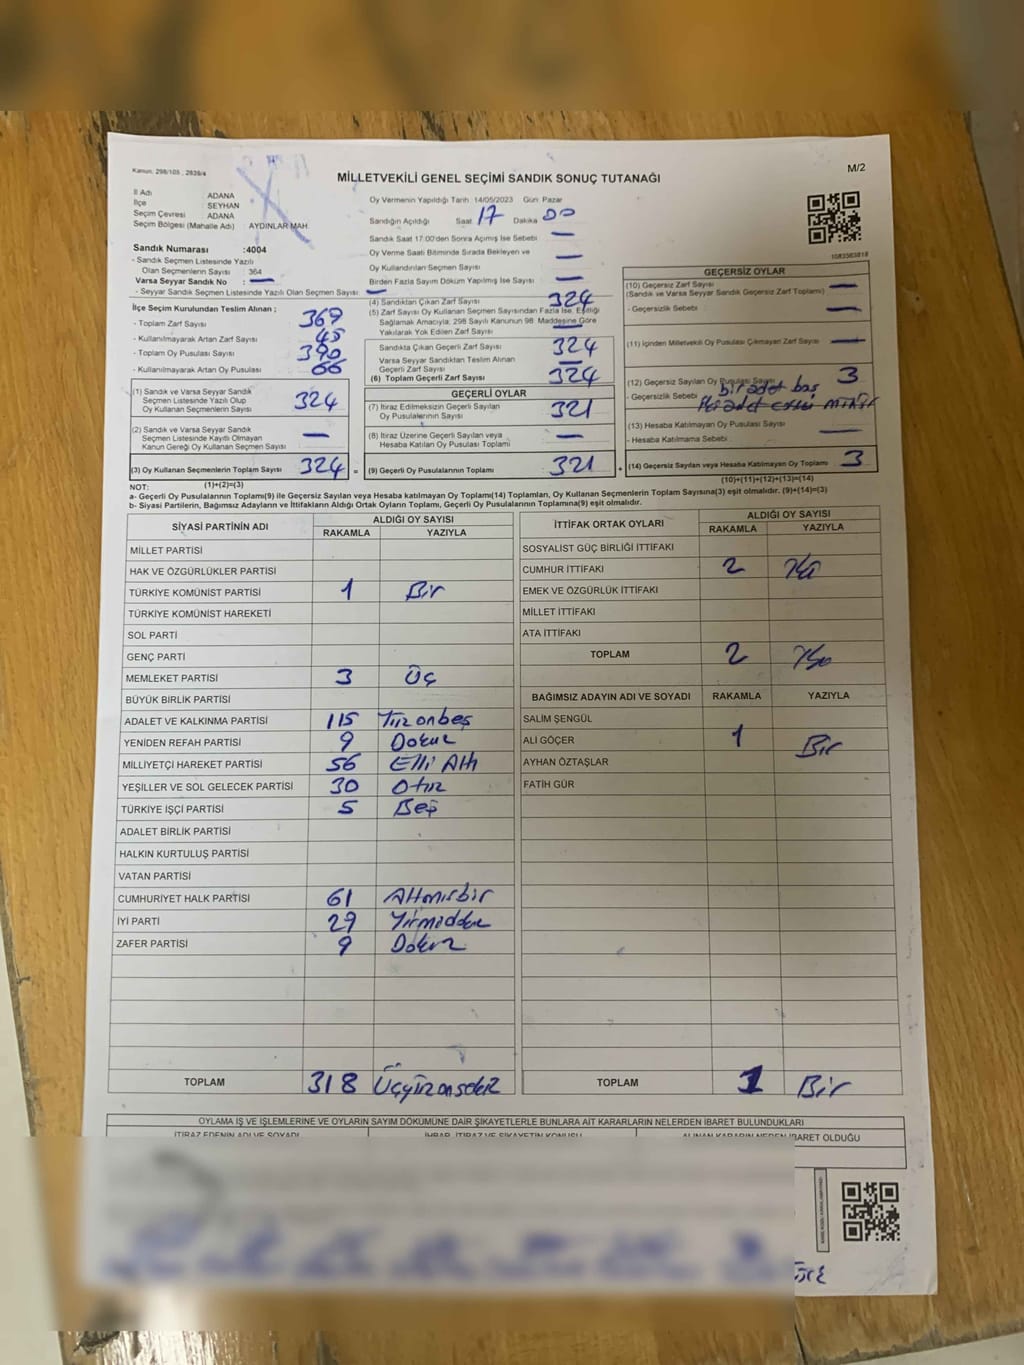 Kanun: 298/105 , 2839/4
MİLLETVEKİLİ GENEL SEÇİMİ SANDIK SONUÇ TUTANAĞI
M/2
İl Adı ADANA
İlçe SEYHAN
Seçim Çevresi ADANA
Seçim Bölgesi (Mahalle Adı) AYDINLAR MAH.
Sandık Numarası :4004
- Sandık Seçmen Listesinde Yazılı
Olan Seçmenlerin Sayısı : 364
Varsa Seyyar Sandık No : —
- Seyyar Sandık Seçmen Listesinde Yazılı Olan Seçmen Sayısı : —
Oy Vermenin Yapıldığı Tarih :14/05/2023 Gün: Pazar
Sandığın Açıldığı Saat 17 Dakika 00
Sandık Saat 17:00'den Sonra Açımış İse Sebebi —
Oy Verme Saati Bitiminde Sırada Bekleyen ve
Oy Kullandırılan Seçmen Sayısı —
Birden Fazla Sayım Döküm Yapılmış İse Sayısı —
1083583818
İlçe Seçim Kurulundan Teslim Alınan ;
- Toplam Zarf Sayısı 369
- Kullanılmayarak Artan Zarf Sayısı 45
- Toplam Oy Pusulası Sayısı 390
- Kullanılmayarak Artan Oy Pusulası 66
(1) Sandık ve Varsa Seyyar Sandık
Seçmen Listesinde Yazılı Olup
Oy Kullanan Seçmenlerin Sayısı 324
(2) Sandık ve Varsa Seyyar Sandık
Seçmen Listesinde Kayıtlı Olmayan
Kanun Gereği Oy Kullanan Seçmen Sayısı —
(3) Oy Kullanan Seçmenlerin Toplam Sayısı 324 =
(4) Sandıktan Çıkan Zarf Sayısı 324
(5) Zarf Sayısı Oy Kullanan Seçmen Sayısından Fazla İse, Eşitliği
Sağlamak Amacıyla, 298 Sayılı Kanunun 98. Maddesine Göre
Yakılarak Yok Edilen Zarf Sayısı —
Sandıkta Çıkan Geçerli Zarf Sayısı 324
Varsa Seyyar Sandıktan Teslim Alınan
Geçerli Zarf Sayısı —
(6) Toplam Geçerli Zarf Sayısı 324
GEÇERLİ OYLAR
(7) İtiraz Edilmeksizin Geçerli Sayılan
Oy Pusulalarının Sayısı 321
(8) İtiraz Üzerine Geçerli Sayılan veya
Hesaba Katılan Oy Pusulası Toplamı —
(9) Geçerli Oy Pusulalarının Toplamı 321 +
GEÇERSİZ OYLAR
(10) Geçersiz Zarf Sayısı
(Sandık ve Varsa Seyyar Sandık Geçersiz Zarf Toplamı) —
- Geçersizlik Sebebi —
(11) İçinden Milletvekili Oy Pusulası Çıkmayan Zarf Sayısı —
(12) Geçersiz Sayılan Oy Pusulası Sayısı 3
- Geçersizlik Sebebi bir adet boş
(13) Hesaba Katılmayan Oy Pusulası Sayısı —
- Hesaba Katılmama Sebebi —
(14) Geçersiz Sayılan veya Hesaba Katılmayan Oy Toplamı 3
NOT: (1)+(2)=(3) (10)+(11)+(12)+(13)=(14)
a- Geçerli Oy Pusulalarının Toplamı(9) ile Geçersiz Sayılan veya Hesaba katılmayan Oy Toplamı(14) Toplamları, Oy Kullanan Seçmenlerin Toplam Sayısına(3) eşit olmalıdır. (9)+(14)=(3)
b- Siyasi Partilerin, Bağımsız Adayların ve İttifakların Aldığı Ortak Oyların Toplamı, Geçerli Oy Pusulalarının Toplamına(9) eşit olmalıdır.
SİYASİ PARTİNİN ADI ALDIĞI OY SAYISI
RAKAMLA YAZIYLA
MİLLET PARTİSİ
HAK VE ÖZGÜRLÜKLER PARTİSİ
TÜRKİYE KOMÜNİST PARTİSİ 1 Bir
TÜRKİYE KOMÜNİST HAREKETİ
SOL PARTİ
GENÇ PARTİ
MEMLEKET PARTİSİ 3 Üç
BÜYÜK BİRLİK PARTİSİ
ADALET VE KALKINMA PARTİSİ 115 Yüzonbeş
YENİDEN REFAH PARTİSİ 9 Dokuz
MİLLİYETÇİ HAREKET PARTİSİ 56 Elli Altı
YEŞİLLER VE SOL GELECEK PARTİSİ 30 Otuz
TÜRKİYE İŞÇİ PARTİSİ 5 Beş
ADALET BİRLİK PARTİSİ
HALKIN KURTULUŞ PARTİSİ
VATAN PARTİSİ
CUMHURİYET HALK PARTİSİ 61 Altmışbir
İYİ PARTİ 29 Yirmidokuz
ZAFER PARTİSİ 9 Dokuz
TOPLAM 318 Üçyüzonsekiz
İTTİFAK ORTAK OYLARI ALDIĞI OY SAYISI
RAKAMLA YAZIYLA
SOSYALİST GÜÇ BİRLİĞİ İTTİFAKI
CUMHUR İTTİFAKI 2 İki
EMEK VE ÖZGÜRLÜK İTTİFAKI
MİLLET İTTİFAKI
ATA İTTİFAKI
TOPLAM 2 İki
BAĞIMSIZ ADAYIN ADI VE SOYADI RAKAMLA YAZIYLA
SALİM ŞENGÜL
ALİ GÖÇER 1 Bir
AYHAN ÖZTAŞLAR
FATİH GÜR
TOPLAM 1 Bir
OYLAMA İŞ VE İŞLEMLERİNE VE OYLARIN SAYIM DÖKÜMÜNE DAİR ŞİKAYETLERLE BUNLARA AİT KARARLARIN NELERDEN İBARET BULUNDUKLARI
İTİRAZ EDENİN ADI VE SOYADI İHBAR, İTİRAZ VE ŞİKAYETİN KONUSU ALINAN KARARIN NEDEN İBARET OLDUĞU